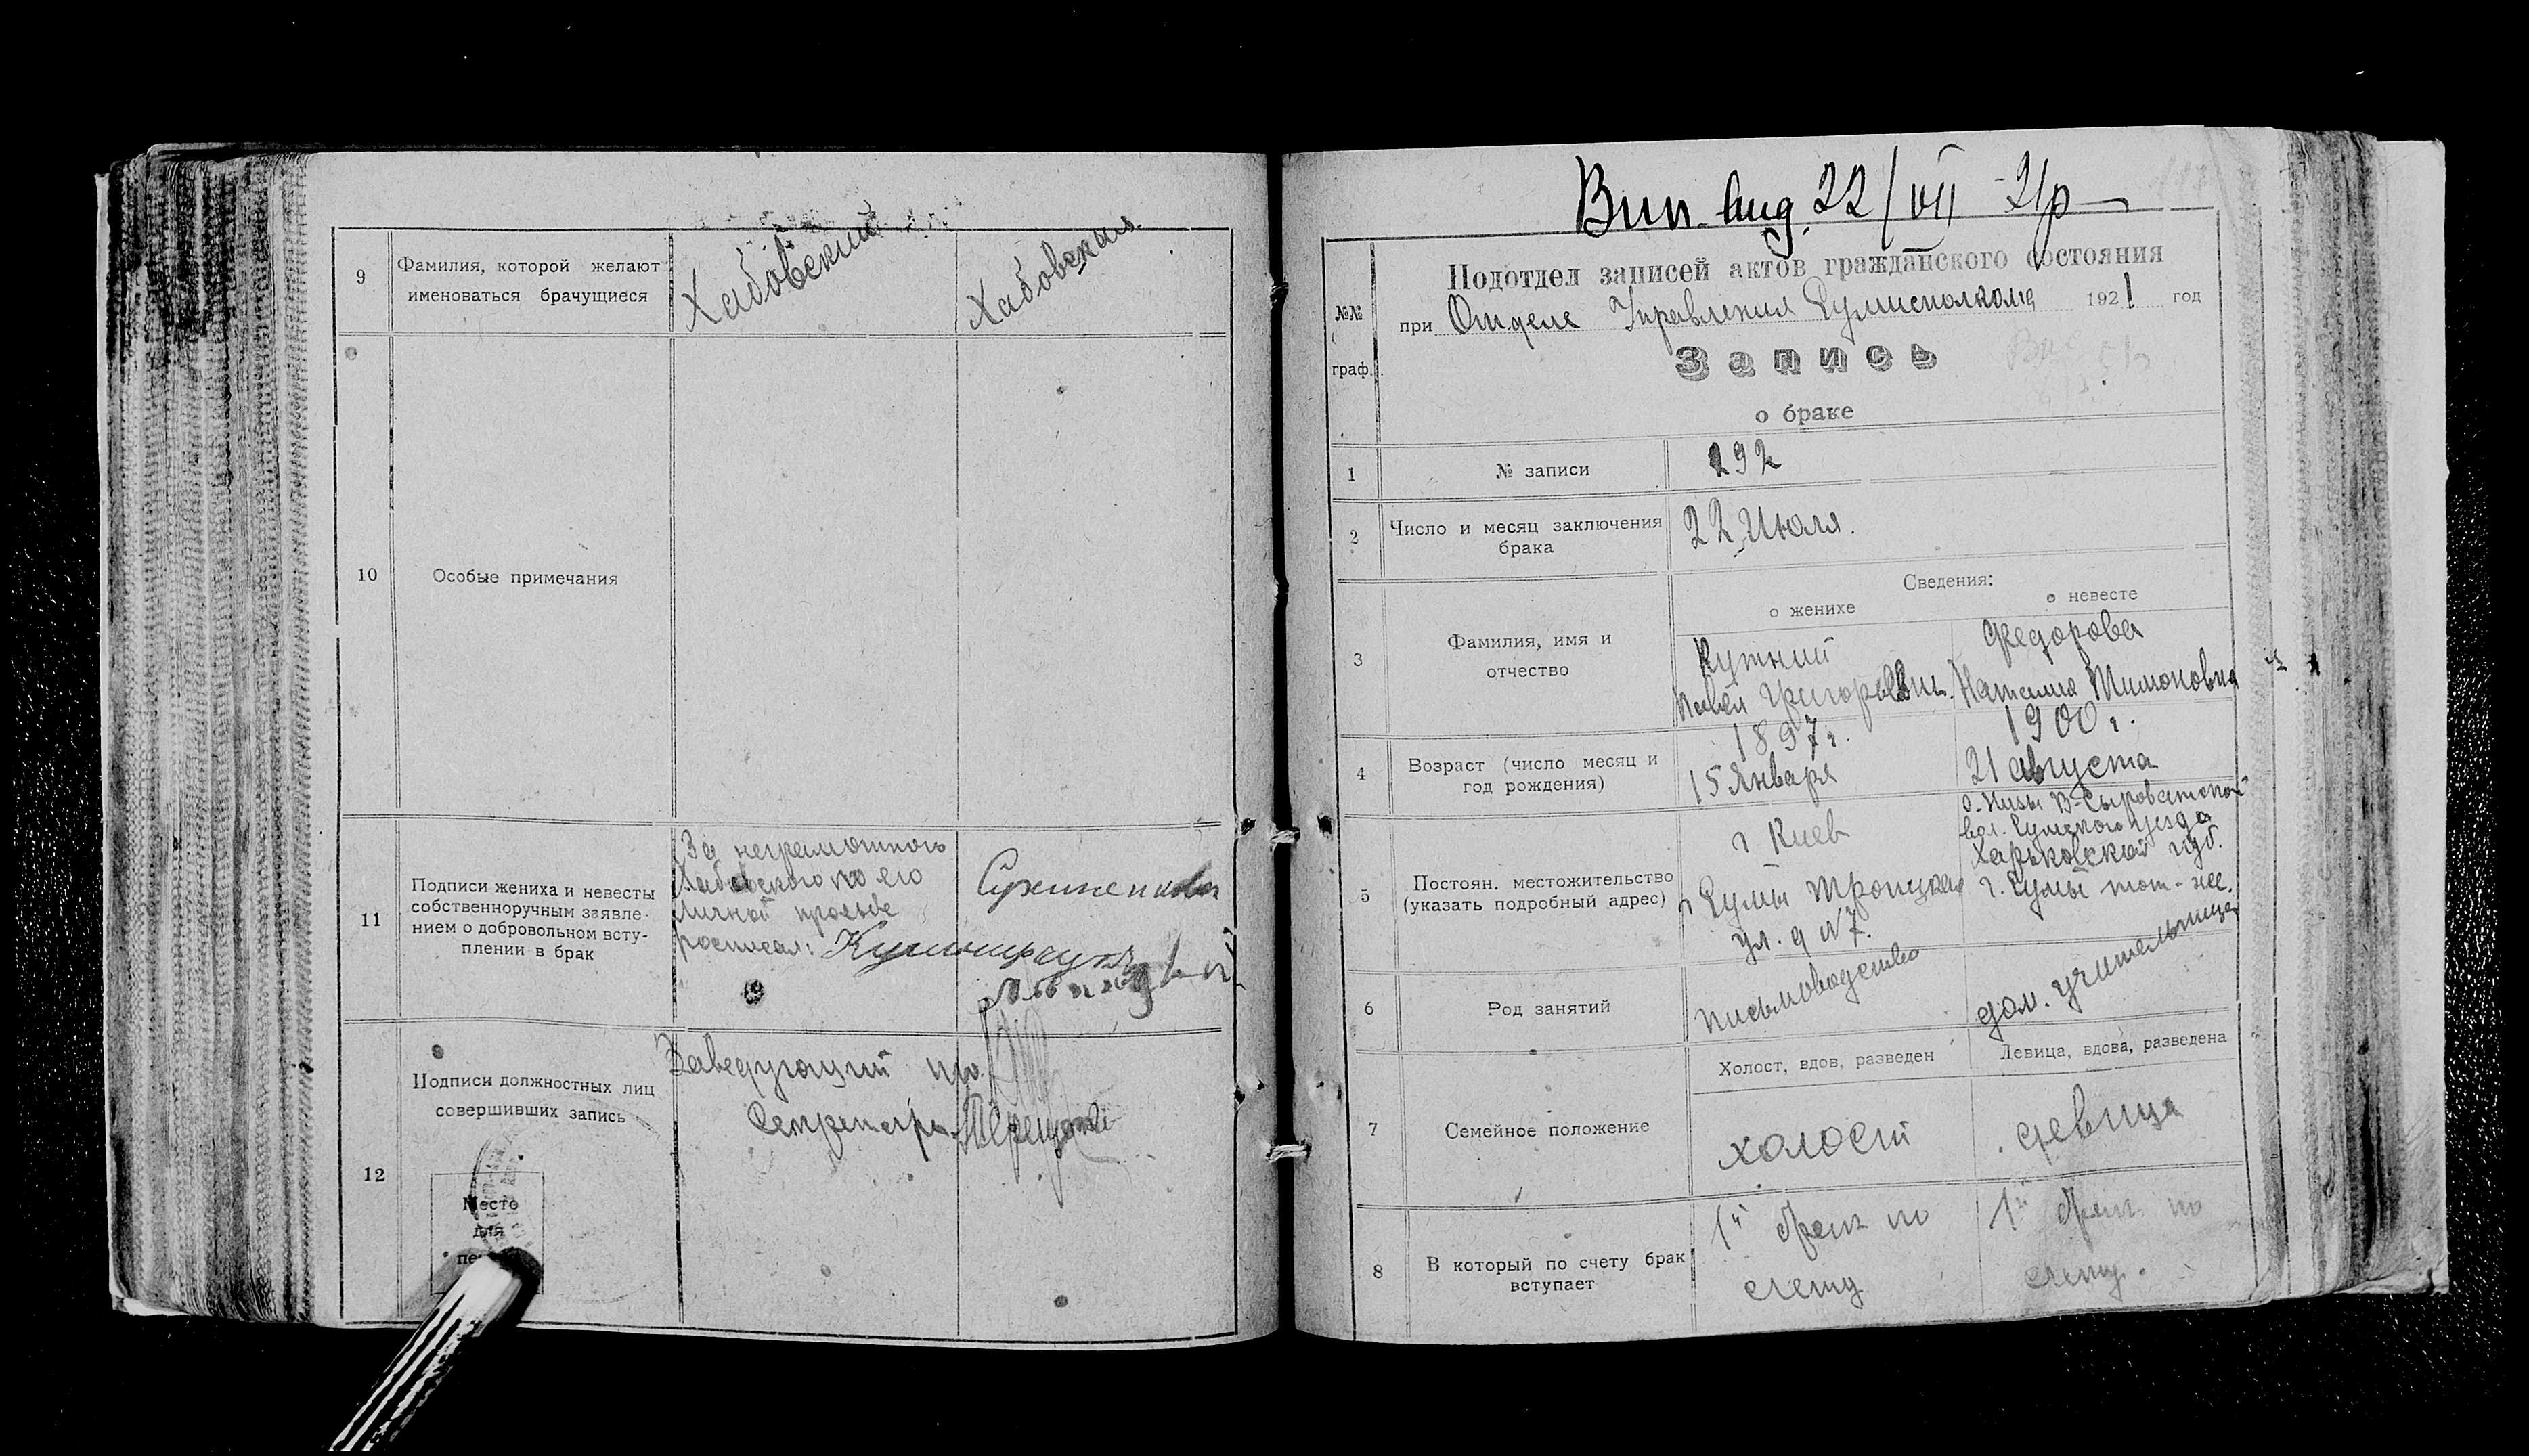 9
Фамилия, которой желают
именоваться брачущиеся
Хабовский
Хабовская
10
Особые примечания
11
Подписи жениха и невесты
собственноручным заявле-
нием о добровольном всту-
плении в брак
За неграмотного
Хабовского по его
личной прозьбе
росписал:
12
Подписи должностных лиц
совершивших запись
Заведующий
Секретарь
Место
для
Вип. вид. 22/VII 21р
№№
граф.
Подотдел записей актов гражданского состояния
при Отделе Управления Сумисполкома 1921 год
Запись
о браке
1
№ записи
292
2
Число и месяц заключения
брака
22 Июля.
Сведения:
о женихе
о невесте
3
Фамилия, имя и
отчество
Кутний
Павел Григорьевич.
Федорова
Наталия Тимоновна
4
Возраст (число месяц и
год рождения)
1897 г.
15 Января
1900 г.
21 августа
5
Постоян. местожительство
(указать подробный адрес)
г Киев
г Сумы Троицкая
ул. д №7.
с. Низы В-Сыроватской
вол. Сумского уезда
Харьковской губ.
г. Сумы тот-же.
6
Род занятий
письмоводство
дом. учительница
7
Семейное положение
Холост, вдов, разведен
Девица, вдова, разведена
холост
девица
8
В который по счету брак
вступает
1й брак по
счету
1й брак по
счету.